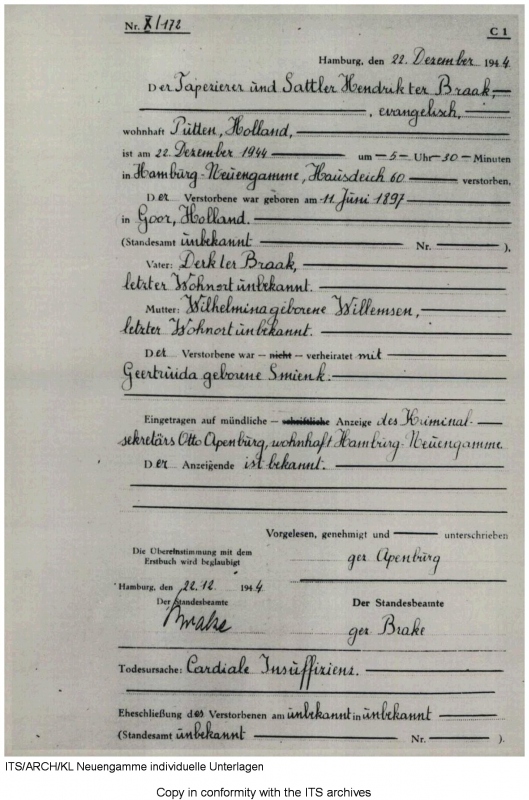 Nr. X/172 C 1
Hamburg, den 22. Dezember 1944
Der Tapezierer und Sattler Hendrik ter Braak,
, evangelisch,
wohnhaft Putten, Holland,
ist am 22. Dezember 1944 um –5– Uhr –30– Minuten
in Hamburg-Neuengamme, Hausdeich 60 verstorben.
Der Verstorbene war geboren am 11. Juni 1897
in Goor, Holland.
(Standesamt unbekannt Nr. ).
Vater: Derk ter Braak,
letzter Wohnort unbekannt.
Mutter: Wilhelmina geborene Willemsen,
letzter Wohnort unbekannt.
Der Verstorbene war – nicht – verheiratet mit
Geertruida geborene Smienk.
Eingetragen auf mündliche – schriftliche Anzeige des Kriminal-
sekretärs Otto Apenburg, wohnhaft Hamburg-Neuengamme.
Der Anzeigende ist bekannt.
Vorgelesen, genehmigt und unterschrieben
Die Übereinstimmung mit dem
Erstbuch wird beglaubigt
gez Apenburg
Hamburg, den 22.12. 1944.
Der Standesbeamte Der Standesbeamte
Brake gez Brake
Todesursache: Cardiale Insuffizienz.
Eheschließung des Verstorbenen am unbekannt in unbekannt
(Standesamt unbekannt Nr. ).
ITS/ARCH/KL Neuengamme individuelle Unterlagen
Copy in conformity with the ITS archives